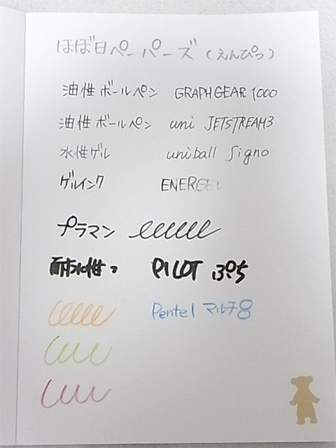 ほぼ日ペーパーズ(えんぴつ)
油性ボールペン GRAPHGEAR 1000
油性ボールペン uni JETSTREAM3
水性ゲル uniball Signo
ゲルインク ENERGEL
プラマン
耐水性 PILOT ぷち
Pentel マルチ8